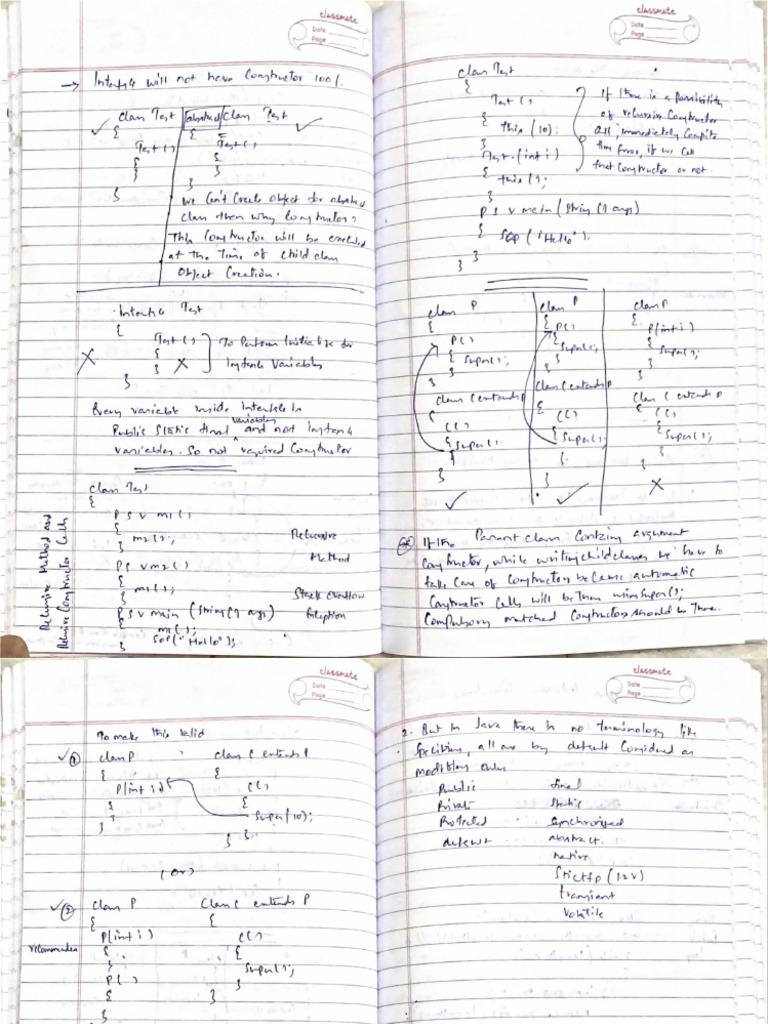 classmate
Date
Page
→ Interface will not have Constructor 100%.
class Test
{
Test()
{
}
}
abstract class Test
{
Test()
{
}
}
We Can't Create Object for abstract
class then why Constructor?
This Constructor will be executed
at the Time of child class
Object Creation.
Interface Test
{
Test()
{
}
}
To Perform Initialize for
Instance Variables
Every variable inside Interface is
Public Static final variables and not Instance
variables. So not required Constructor
Recursive Method and
Recursive Constructor Calls
class Test
{
P S V m1()
{
m2();
}
P S V m2()
{
m1();
}
P S V main (String[] args)
{
m1();
SOP("Hello");
}
Recursive
Method
Stack Overflow
Exception
classmate
Date
Page
class Test
{
Test()
{
this(10);
}
Test(int i)
{
this();
}
P S V main(String[] args)
{
SOP("Hello");
}
}
If there is a possibility
of recursive Constructor
Call immediately Compile
time Error, if we Call
that Constructor or not
class P
{
P()
{
Super();
}
}
class C extends P
{
C()
{
Super();
}
}
class P
{
P()
{
Super();
}
}
class C extends P
{
C()
{
Super();
}
}
class P
{
P(int i)
{
Super();
}
}
class C extends P
{
C()
{
Super();
}
}
If the Parent class Contains argument
Constructor, while writing child classes we have to
take Care of Constructors because automatic
Constructor Calls will be there
Compulsory matched Constructor should be there.
classmate
Date
Page
To make this valid
1
class P
{
P(int i)
{
}
}
class C extends P
{
C()
{
Super(10);
}
}
(Or)
2
recommended
class P
{
P(int i)
{
}
P()
{
}
class C extends P
{
C()
{
Super();
}
classmate
Date
Page
2. But in Java there is no terminology like
Specifiers, all are by default Considered as
modifiers only
Public
Private
Protected
default
final
static
Synchronized
abstract.
native
Strictfp (1.2V)
transient
Volatile